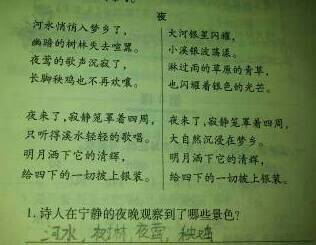 夜
河水悄悄入梦乡了，
幽暗的树林失去喧嚣。
夜莺的歌声沉寂了，
长脚秧鸡也不再欢嚷。
夜来了，寂静笼罩着四周，
只听得溪水轻轻的歌唱。
明月洒下它的清辉，
给四下的一切披上银装。
大河银星闪耀，
小溪银波荡漾。
淋过雨的草原的青草，
也闪耀着银色的光芒。
夜来了，寂静笼罩着四周，
大自然沉浸在梦乡。
明月洒下它的清辉，
给四下的一切披上银装。
1. 诗人在宁静的夜晚观察到了哪些景色？
河水、树林、夜莺、秧鸡